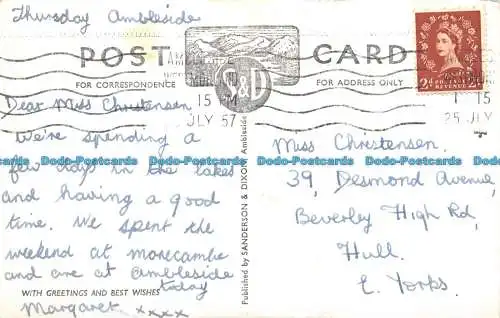 Thursday Ambleside
POST CARD
FOR CORRESPONDENCE
FOR ADDRESS ONLY
S & D
15 PM
JLY 57
1 15
25 JLY
2D 2D
POSTAGE
REVENUE
Dear Miss Christensen
We're spending a
few days in the lakes
and having a good
time. We spent the
weekend at morecambe
and are at Ambleside
today
WITH GREETINGS AND BEST WISHES
Margaret xxxx
Published by SANDERSON & DIXON, Ambleside
Miss Christensen,
39, Desmond Avenue,
Beverley High Rd,
Hull.
E. Yorks.
Dodo-Postcards Dodo-Postcards Dodo-Postcards Dodo-Postcards